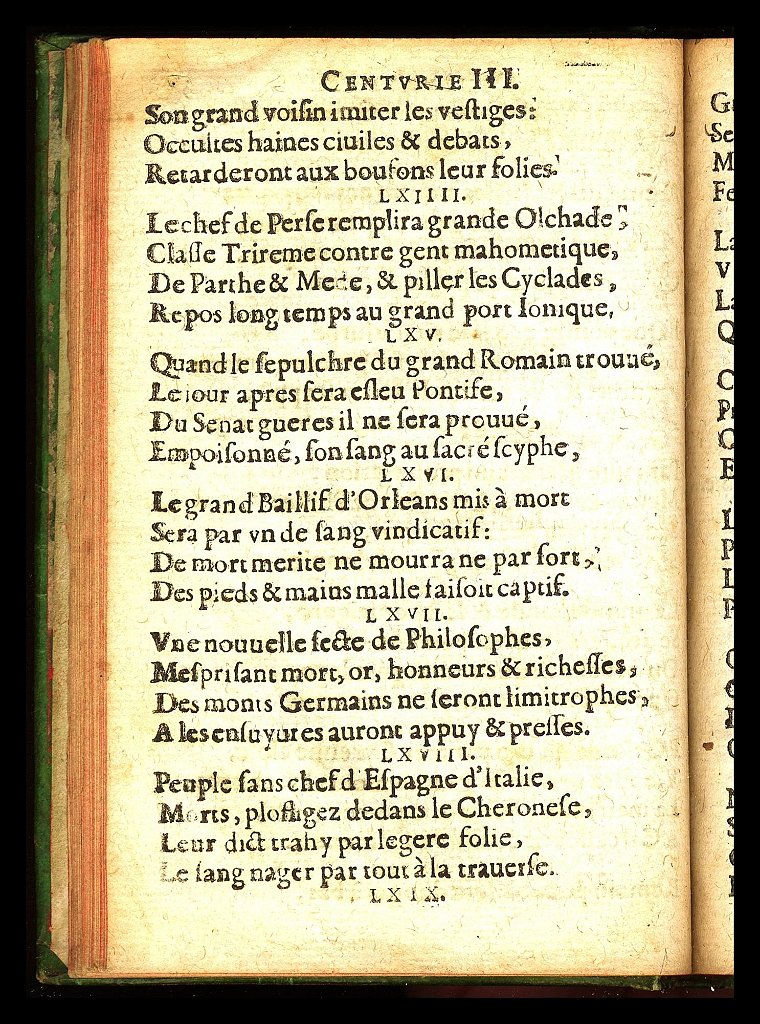 CENTVRIE III.
Son grand voisin imiter les vestiges:
Occultes haines ciuiles & debats,
Retarderont aux boufons leur folies.
LXIIII.
Le chef de Perse remplira grande Olchade,
Classe Trireme contre gent mahometique,
De Parthe & Mede, & piller les Cyclades,
Repos long temps au grand port Ionique,
LXV.
Quand le sepulchre du grand Romain trouué,
Le iour apres sera esleu Pontife,
Du Senat gueres il ne sera prouué,
Empoisonné, son sang au sacré scyphe,
LXVI.
Le grand Baillif d'Orleans mis à mort
Sera par vn de sang vindicatif:
De mort merite ne mourra ne par sort,
Des pieds & mains malle faisoit captif.
LXVII.
Vne nouuelle secte de Philosophes,
Mesprisant mort, or, honneurs & richesses,
Des monts Germains ne seront limitrophes,
A les ensuyures auront appuy & presses.
LXVIII.
Peuple sans chef d'Espagne d'Italie,
Morts, ploffigez dedans le Cheronese,
Leur dict trahy par legere folie,
Le sang nager par tout à la trauerse.
LXIX.